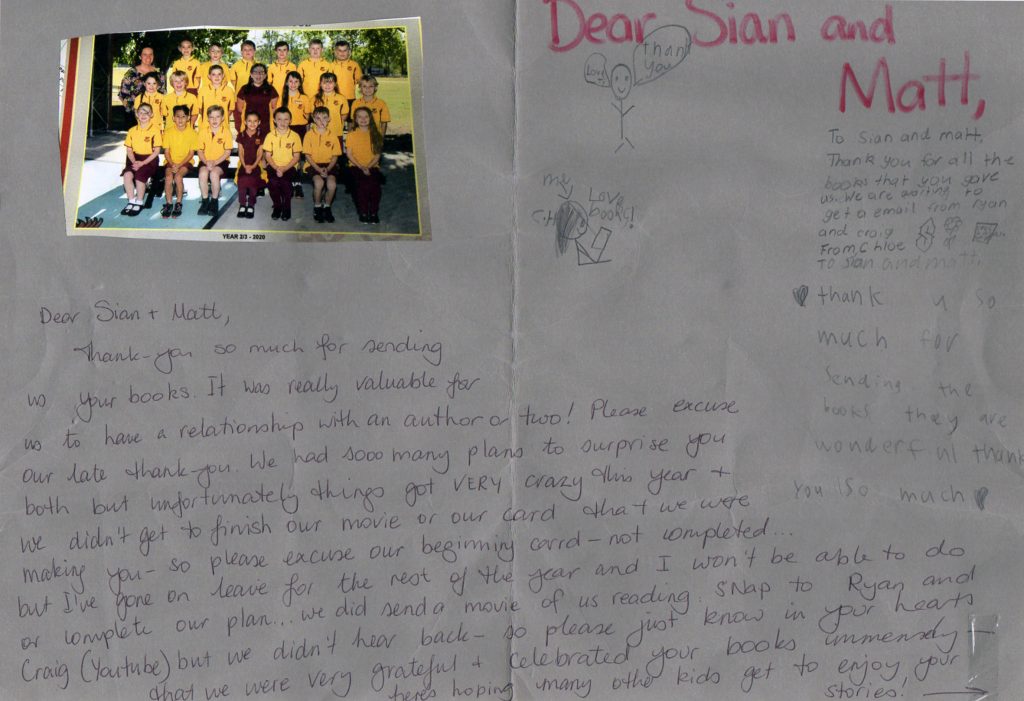 YEAR 2/3 - 2020
Dear Sian and
Matt,
thank
you
Love
me
Love
books!
To Sian and matt,
Thank you for all the
books that you gave
us. We are waiting to
get a email from Ryan
and craig
From, Chloe
TO Sian and matt.
thank u so
much for
sending the
books they are
wonderful thank
you so much
Dear Sian + Matt,
Thank-you so much for sending
us your books. It was really valuable for
us to have a relationship with an author or two! Please excuse
our late thank-you. We had sooo many plans to surprise you
both but unfortunately things got VERY crazy this year +
we didn't get to finish our movie or our card that we were
making you - so please excuse our beginning card - not completed...
but I've gone on leave for the rest of the year and I won't be able to do
or complete our plan... we did send a movie of us reading SNap to Ryan and
Craig (Youtube) but we didn't hear back - so please just know in your hearts
that we were very grateful + celebrated your books immensely +
heres hoping many othe kids get to enjoy your
stories!